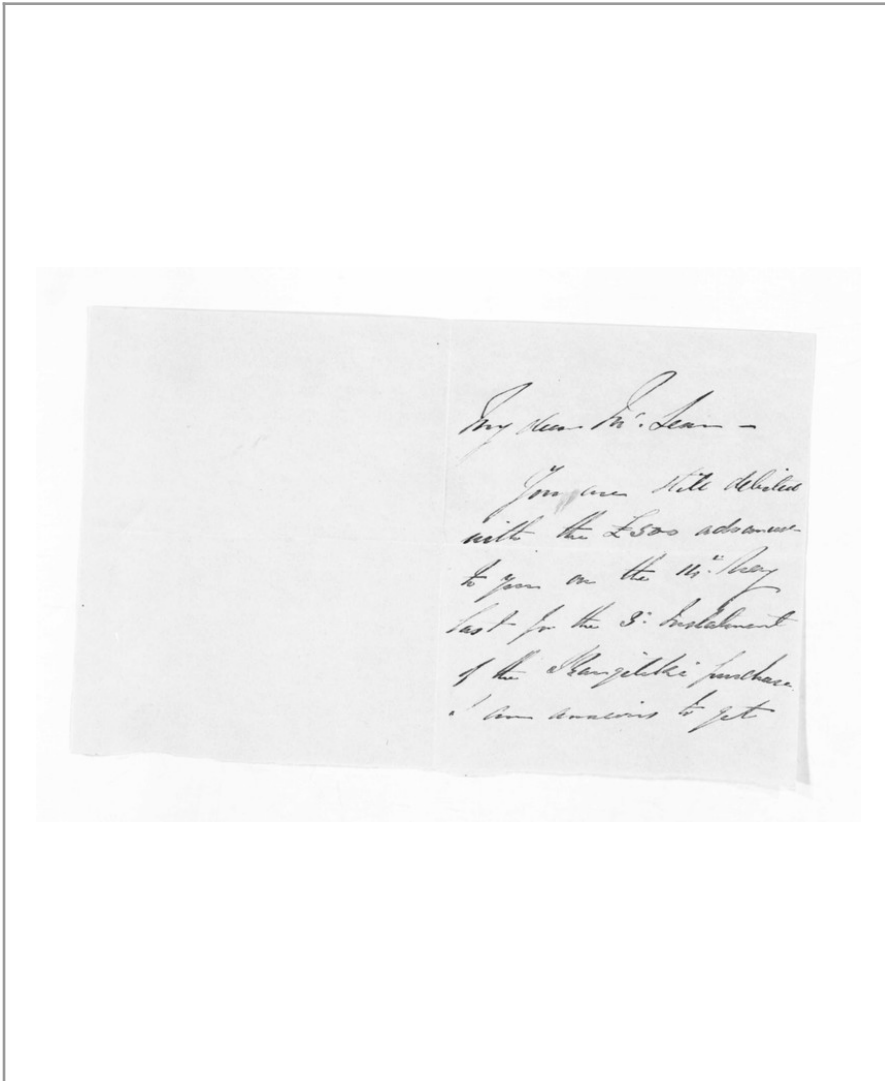 My dear McLean —
You are still debited
with the £500 advance
to you on the 14th May
last for the 3d Instalment
of the Rangitiki purchase.
I am anxious to get